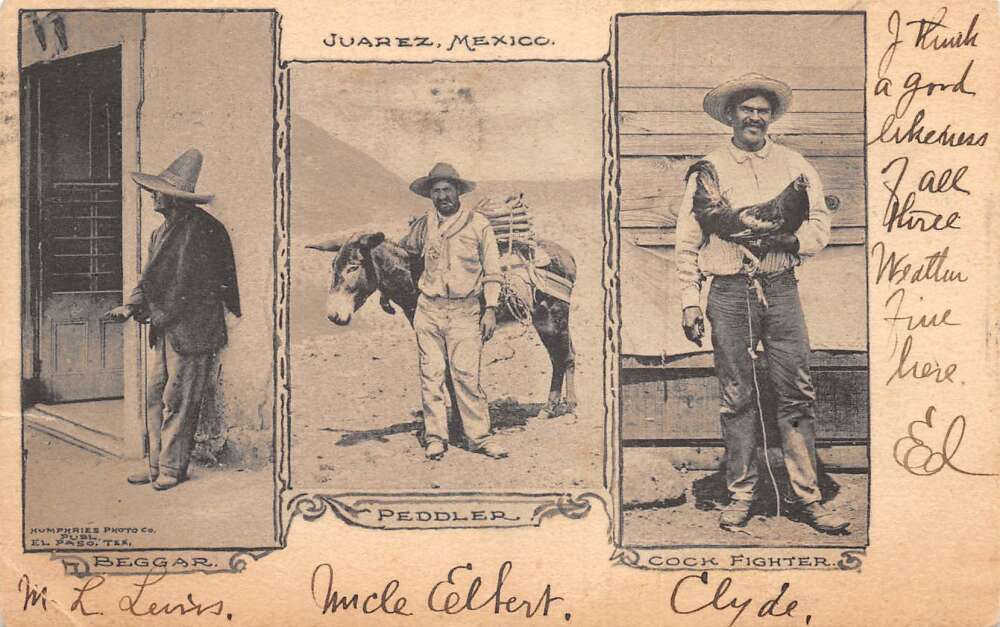 JUAREZ, MEXICO.
HUMPHRIES PHOTO CO.
PUBL.
EL PASO, TEX.
BEGGAR.
PEDDLER.
COCK FIGHTER.
M. L. Lewis.
Uncle Elbert.
Clyde.
I think
a good
likeness
of all
three
Weather
Fine
here.
Ed